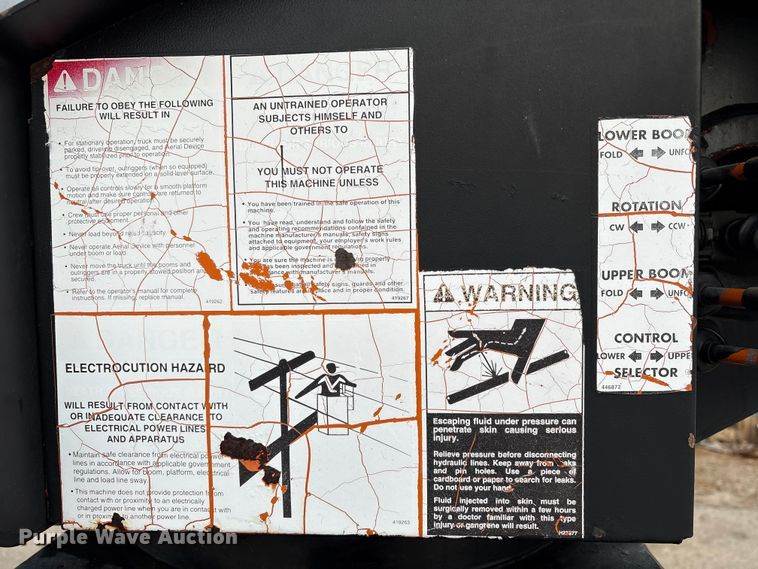 DAN
FAILURE TO OBEY THE FOLLOWING
WILL RESULT IN
• For stationary operation, truck must be securely
parked, driveline disengaged, and Aerial Device
properly stabilized prior to operation.
• To avoid tip-over, outriggers (when so equipped)
must be properly extended on solid level surface.
• Operate all controls slowly for a smooth platform
motion and make sure controls are returned to
neutral after desired operation.
• Crew must use proper personal and other
protective equipment.
• Never load beyond rated capacity.
• Never operate Aerial Device with personnel
under boom or load.
• Never move the truck until the booms and
outriggers are in a properly stowed position and
secured.
• Refer to the operator's manual for complete
instructions. If missing, replace manual.
419262
AN UNTRAINED OPERATOR
SUBJECTS HIMSELF AND
OTHERS TO
YOU MUST NOT OPERATE
THIS MACHINE UNLESS
• You have been trained in the safe operation of this
machine.
• You have read, understand and follow the safety
and operating recommendations contained in the
machine manufacturer's manuals, safety signs
attached to equipment, your employer's work rules
and applicable government regulations.
• You are sure the machine is operating properly
has been inspected and
with manufacturer's manuals.
safety signs, guards and other
safety features are in place and in proper condition.
419267
ELECTROCUTION HAZARD
WILL RESULT FROM CONTACT WITH
OR INADEQUATE CLEARANCE TO
ELECTRICAL POWER LINES
AND APPARATUS
• Maintain safe clearance from electrical power
lines in accordance with applicable government
regulations. Allow for boom, platform, electrical
line and load line sway.
• This machine does not provide protection from
contact with or proximity to an electrically
charged power line when you are in contact with
or in proximity to another power line.
419263
WARNING
Escaping fluid under pressure can
penetrate skin causing serious
injury.
Relieve pressure before disconnecting
hydraulic lines. Keep away from leaks
and pin holes. Use a piece of
cardboard or paper to search for leaks.
Do not use your hand.
Fluid injected into skin must be
surgically removed within a few hours
by a doctor familiar with this type
injury or gangrene will result.
LOWER BOOM
FOLD UNFO
ROTATION
CW CCW
UPPER BOOM
FOLD UNFO
CONTROL
LOWER UPPE
SELECTOR
446872
Purple Wave Auction